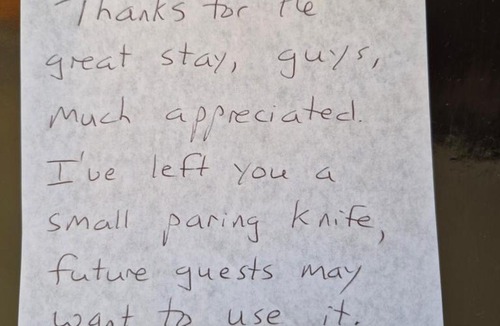 Thanks for the
great stay, guys,
much appreciated.
I've left you a
small paring knife,
future guests may
want to use it.